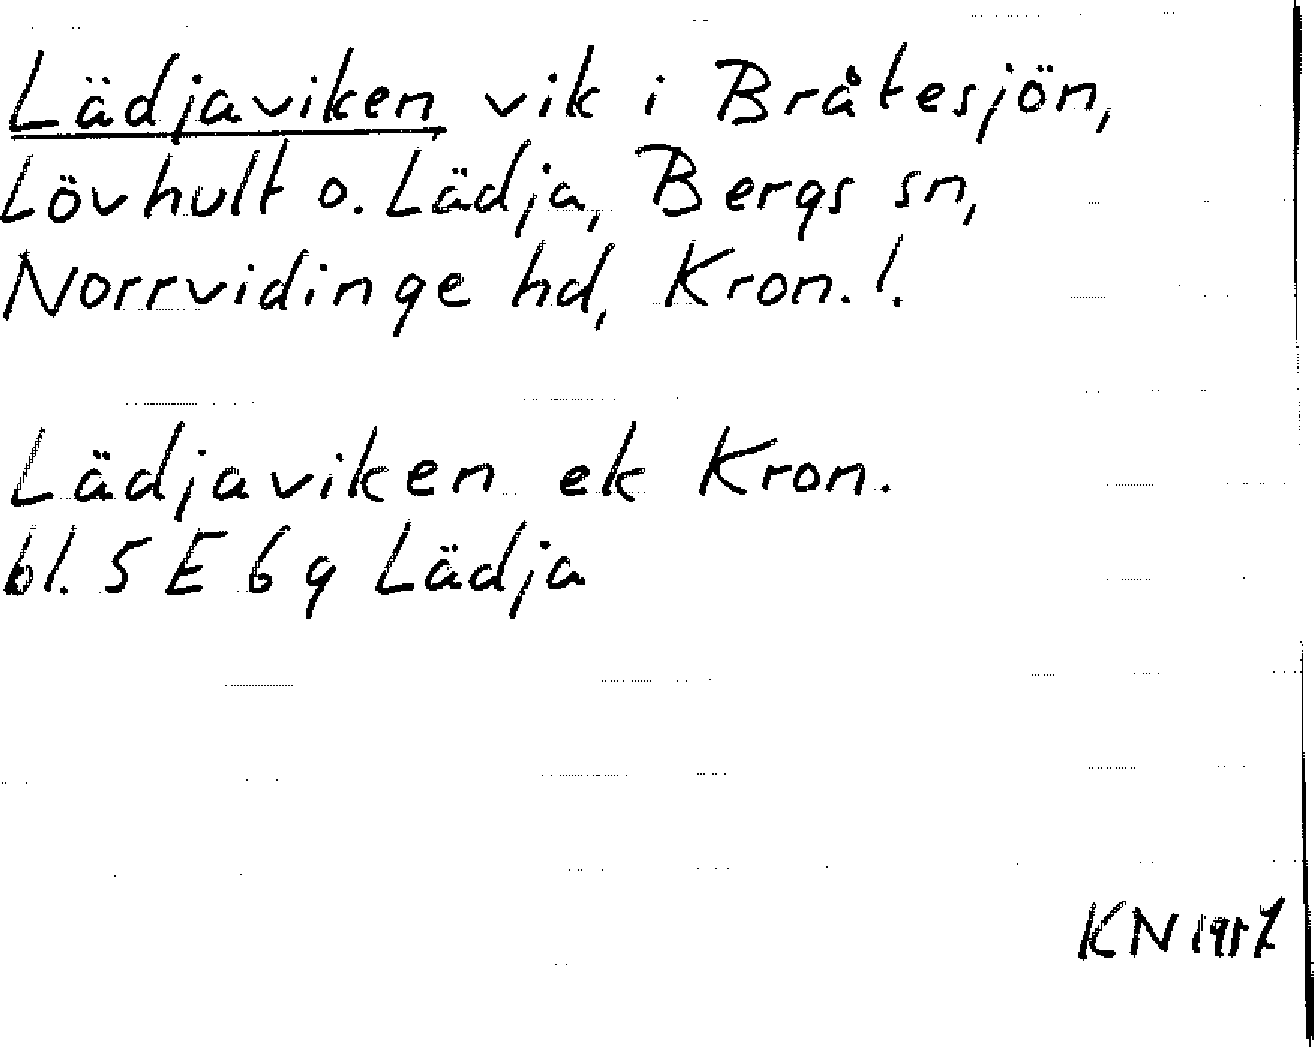 Lädjaviken vik i Bråtesjön,
Lövhult o. Lädja, Bergs sn,
Norrvidinge hd, Kron. l.
Lädjaviken ek Kron.
bl. 5 E 6 g Lädja
KN